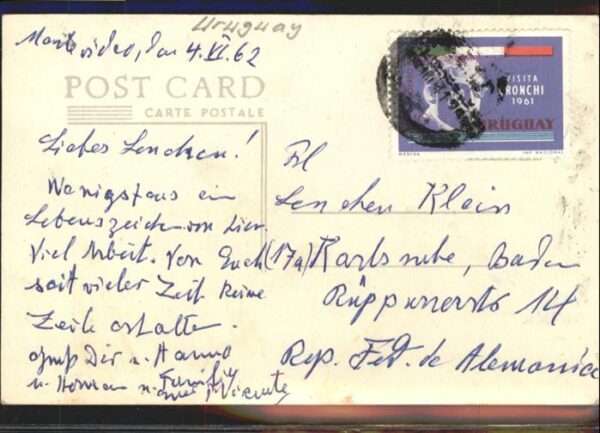 Uruguay
Montevideo, den 4.VI.62
POST CARD
CARTE POSTALE
VISITA
GRONCHI
1961
URUGUAY
Liebes Lenchen!
Wenigstens ein
Lebenszeichen von hier.
Viel Arbeit. Von Euch
seit vieler Zeit keine
Zeile erhalten.
Gruß Dir u. Hanno
u. Herman u. Familie
Vicente
Frl
Lenchen Klein
(17a) Karlsruhe, Baden
Rüppurrerstr 14
Rep. Fed. de Alemania